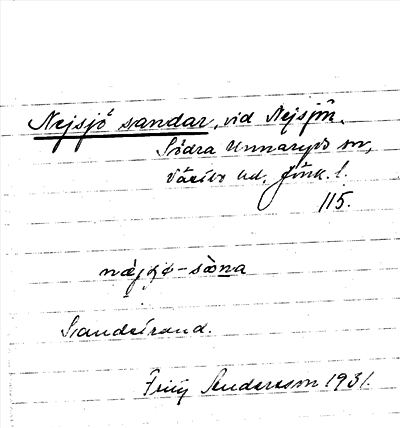 Nejsjö sandar, vid Nejsjön.
Södra Unnaryds sn,
Västbo hd. Jönk. l.
115.
näjʂø-sàna
Sandstrand.
Frity Andersson 1931.